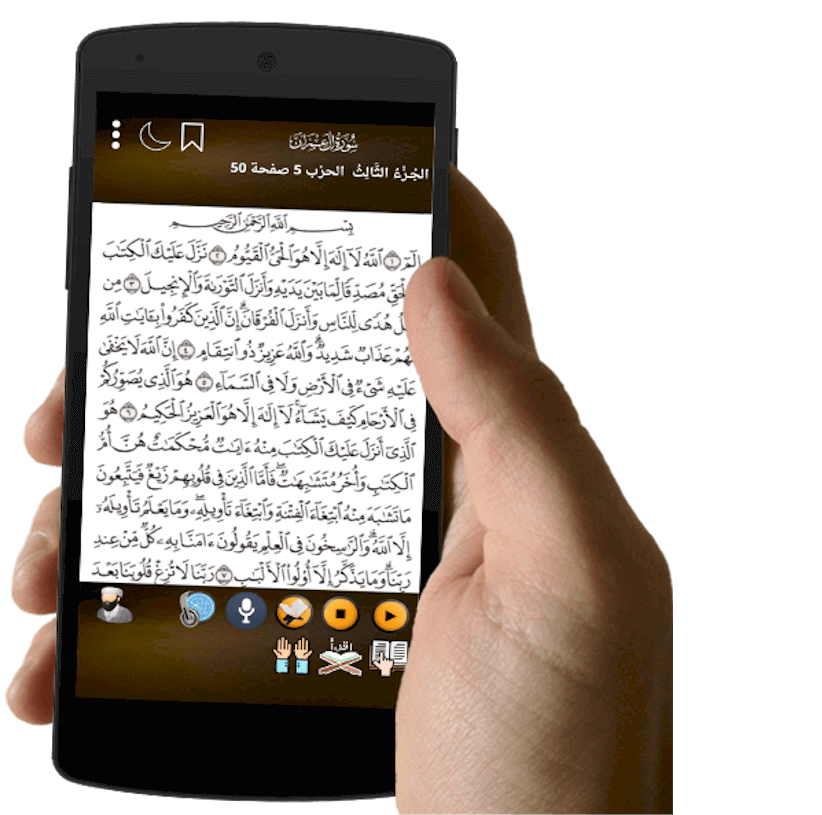 سُورَةُ آلِ عِمْرَانَ
الجُزْءُ الثَّالِثُ الحزب 5 صفحة 50
بِسْمِ اللَّهِ الرَّحْمَٰنِ الرَّحِيمِ
الٓمٓ ١ ٱللَّهُ لَآ إِلَٰهَ إِلَّا هُوَ ٱلْحَىُّ ٱلْقَيُّومُ ٢ نَزَّلَ عَلَيْكَ ٱلْكِتَٰبَ
لْحَقِّ مُصَدِّقًا لِّمَا بَيْنَ يَدَيْهِ وَأَنزَلَ ٱلتَّوْرَىٰةَ وَٱلْإِنجِيلَ ٣ مِن
لُ هُدًى لِّلنَّاسِ وَأَنزَلَ ٱلْفُرْقَانَۗ إِنَّ ٱلَّذِينَ كَفَرُوا۟ بِـَٔايَٰتِ ٱللَّهِ
لَهُمْ عَذَابٌ شَدِيدٌۗ وَٱللَّهُ عَزِيزٌ ذُو ٱنتِقَامٍ ٤ إِنَّ ٱللَّهَ لَا يَخْفَىٰ
عَلَيْهِ شَىْءٌ فِى ٱلْأَرْضِ وَلَا فِى ٱلسَّمَآءِ ٥ هُوَ ٱلَّذِى يُصَوِّرُكُمْ
فِى ٱلْأَرْحَامِ كَيْفَ يَشَآءُۚ لَآ إِلَٰهَ إِلَّا هُوَ ٱلْعَزِيزُ ٱلْحَكِيمُ ٦ هُوَ
ٱلَّذِىٓ أَنزَلَ عَلَيْكَ ٱلْكِتَٰبَ مِنْهُ ءَايَٰتٌ مُّحْكَمَٰتٌ هُنَّ أُمُّ
ٱلْكِتَٰبِ وَأُخَرُ مُتَشَٰبِهَٰتٌۖ فَأَمَّا ٱلَّذِينَ فِى قُلُوبِهِمْ زَيْغٌ فَيَتَّبِعُونَ
مَا تَشَٰبَهَ مِنْهُ ٱبْتِغَآءَ ٱلْفِتْنَةِ وَٱبْتِغَآءَ تَأْوِيلِهِۦۗ وَمَا يَعْلَمُ تَأْوِيلَهُۥٓ
إِلَّا ٱللَّهُۗ وَٱلرَّٰسِخُونَ فِى ٱلْعِلْمِ يَقُولُونَ ءَامَنَّا بِهِۦ كُلٌّ مِّنْ عِندِ
رَبِّنَاۗ وَمَا يَذَّكَّرُ إِلَّآ أُو۟لُوا۟ ٱلْأَلْبَٰبِ ٧ رَبَّنَا لَا تُزِغْ قُلُوبَنَا بَعْدَ
اقرأ